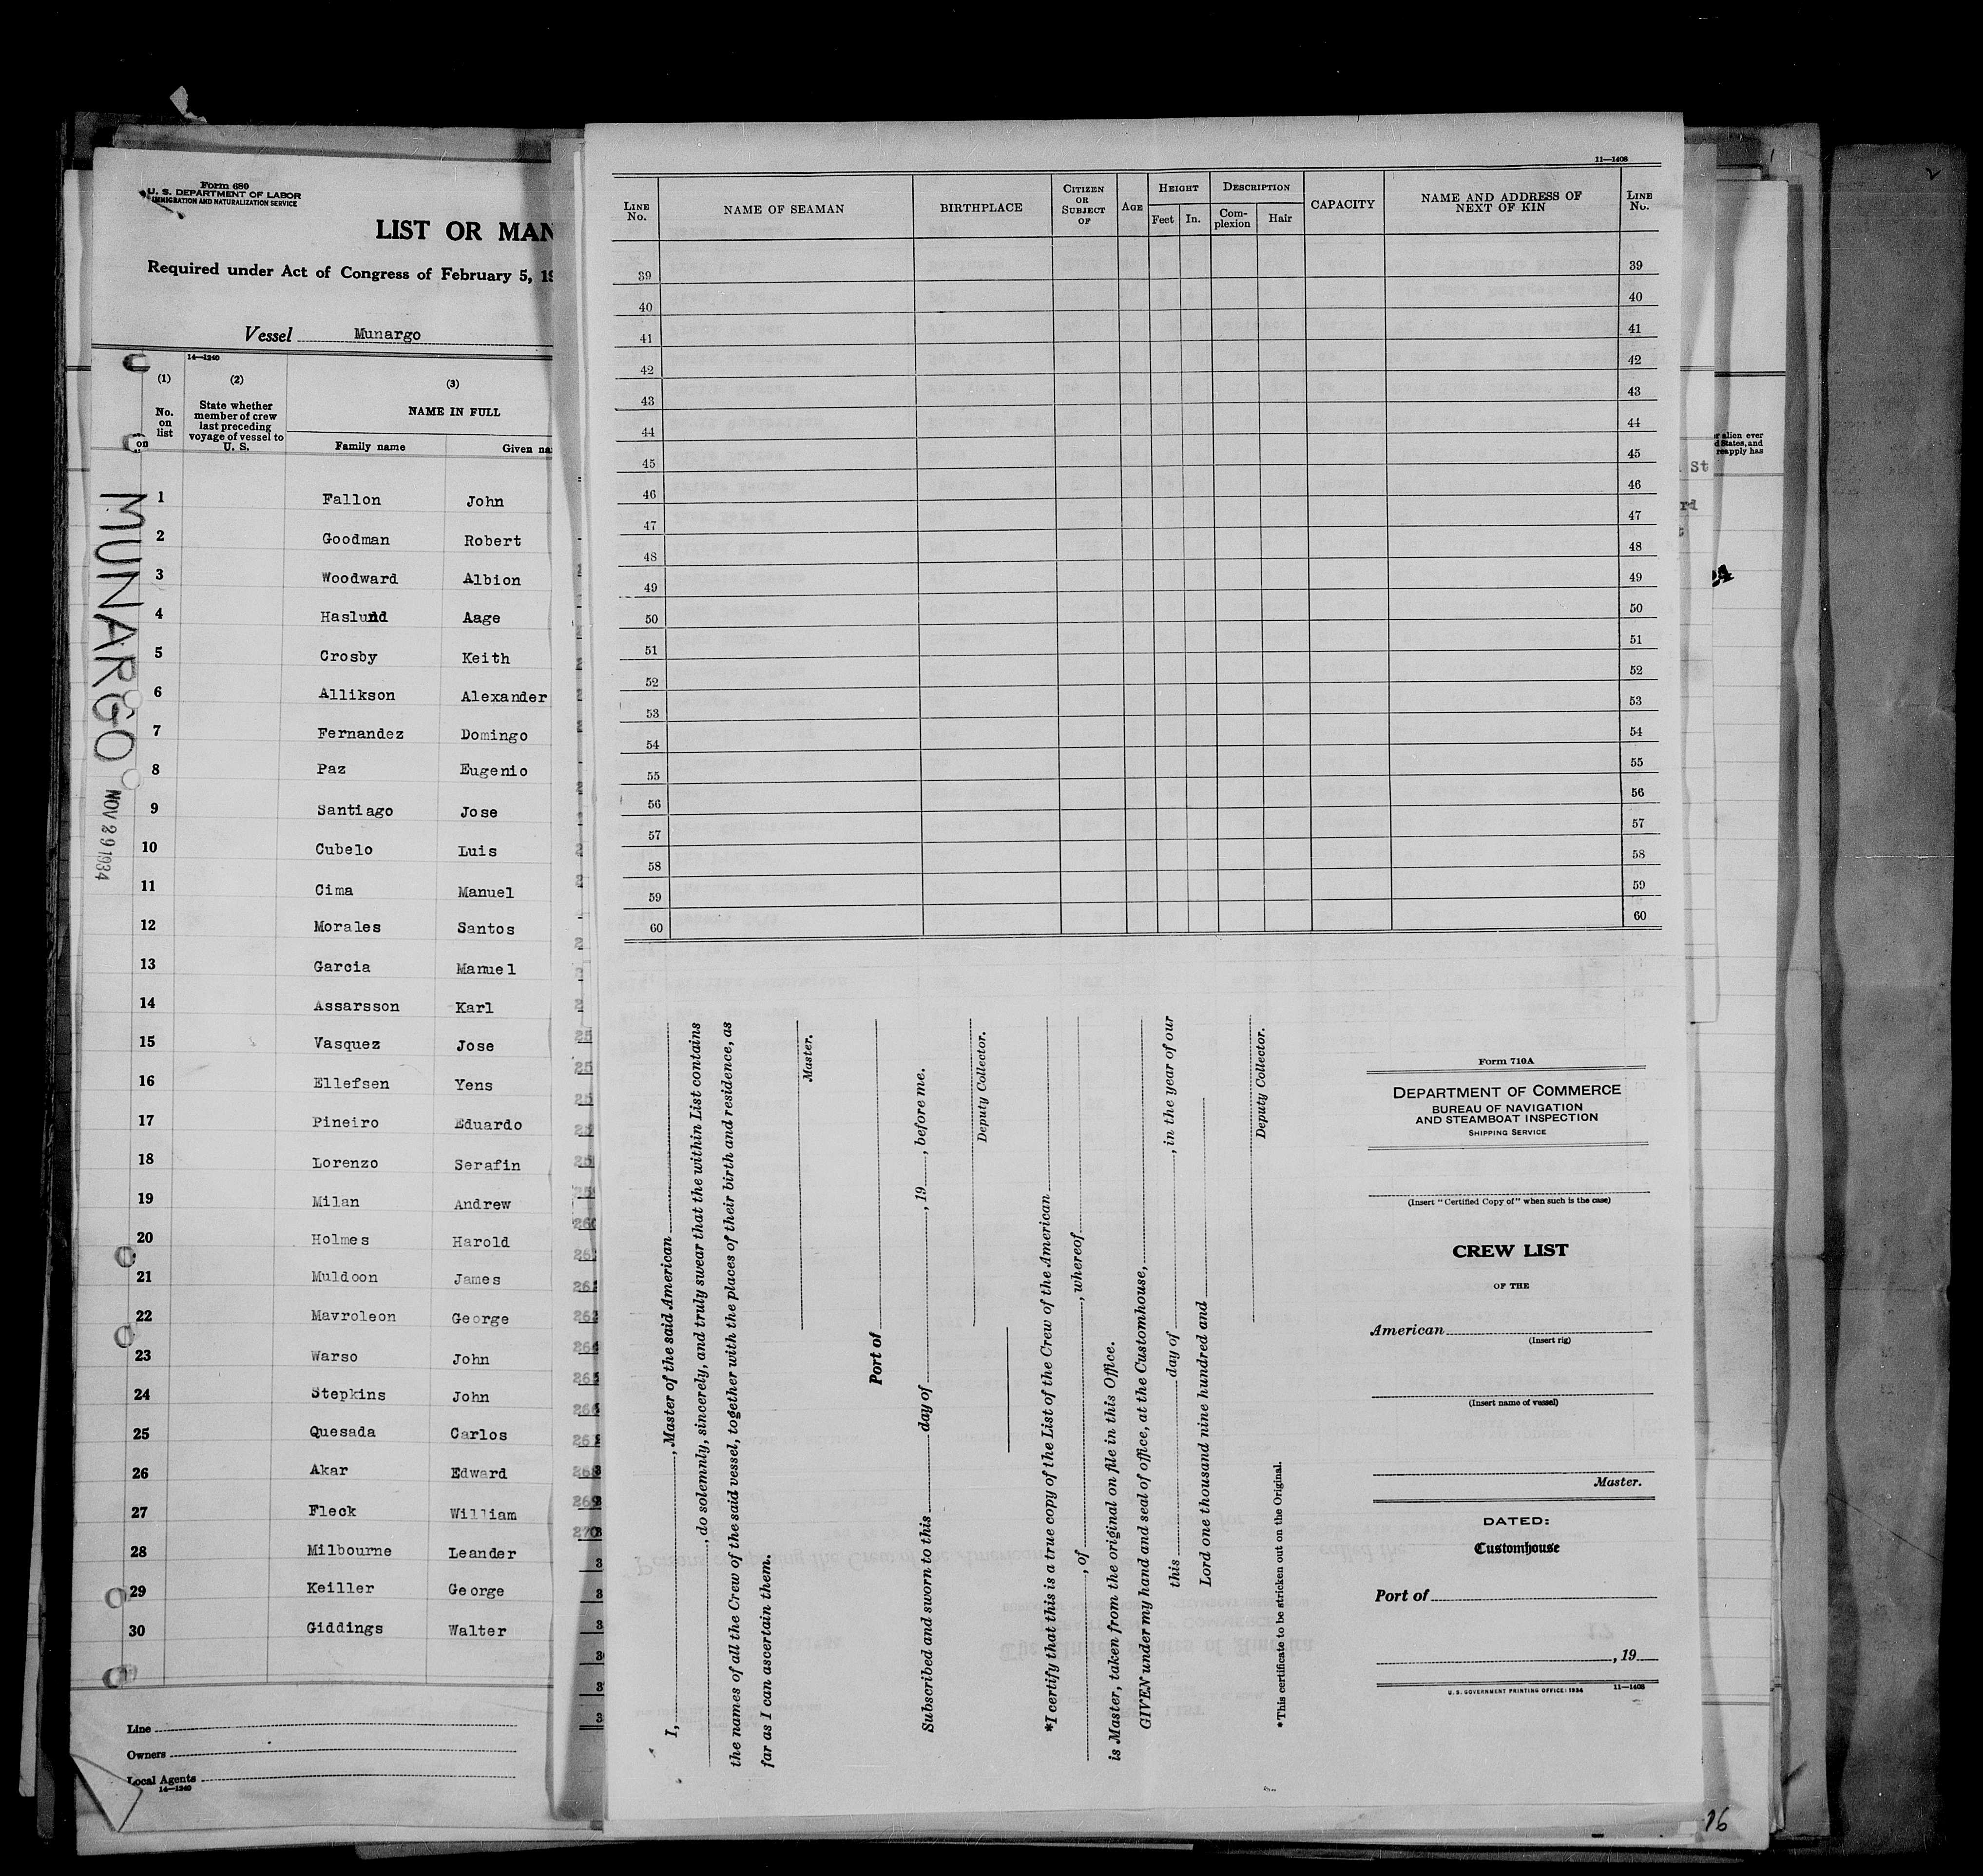 Form 680
U. S. DEPARTMENT OF LABOR
IMMIGRATION AND NATURALIZATION SERVICE
LIST OR MAN
Required under Act of Congress of February 5, 19
Vessel Munargo
14—1240
(1) (2) (3)
No. on list
State whether member of crew last preceding voyage of vessel to U. S.
NAME IN FULL
Family name Given na
on
1 Fallon John
2 Goodman Robert
3 Woodward Albion
4 Haslund Aage
5 Crosby Keith
6 Allikson Alexander
7 Fernandez Domingo
8 Paz Eugenio
9 Santiago Jose
10 Cubelo Luis
11 Cima Manuel
12 Morales Santos
13 Garcia Manuel
14 Assarsson Karl
15 Vasquez Jose
16 Ellefsen Yens
17 Pineiro Eduardo
18 Lorenzo Serafin
19 Milan Andrew
20 Holmes Harold
21 Muldoon James
22 Mavroleon George
23 Warso John
24 Stepkins John
25 Quesada Carlos
26 Akar Edward
27 Fleck William
28 Milbourne Leander
29 Keiller George
30 Giddings Walter
MUNARGO NOV 29 1934
Line
Owners
Local Agents
14—1240
11—1408
LINE No. NAME OF SEAMAN BIRTHPLACE CITIZEN OR SUBJECT OF AGE HEIGHT Feet In. DESCRIPTION Complexion Hair CAPACITY NAME AND ADDRESS OF NEXT OF KIN LINE No.
39 39
40 40
41 41
42 42
43 43
44 44
45 45
46 46
47 47
48 48
49 49
50 50
51 51
52 52
53 53
54 54
55 55
56 56
57 57
58 58
59 59
60 60
I, , Master of the said American
, do solemnly, sincerely, and truly swear that the within List contains
the names of all the Crew of the said vessel, together with the places of their birth and residence, as
far as I can ascertain them.
Master.
Port of
Subscribed and sworn to this day of , 19 , before me.
Deputy Collector.
*I certify that this is a true copy of the List of the Crew of the American
, of , whereof
is Master, taken from the original on file in this Office.
GIVEN under my hand and seal of office, at the Customhouse,
this day of , in the year of our
Lord one thousand nine hundred and
Deputy Collector.
*This certificate to be stricken out on the Original.
Form 710A
DEPARTMENT OF COMMERCE
BUREAU OF NAVIGATION
AND STEAMBOAT INSPECTION
SHIPPING SERVICE
(Insert "Certified Copy of" when such is the case)
CREW LIST
OF THE
American
(Insert rig)
(Insert name of vessel)
Master.
DATED:
Customhouse
Port of
, 19
U. S. GOVERNMENT PRINTING OFFICE: 1934 11—1408
r alien ever
d States, and
reapply has
St
rd
16